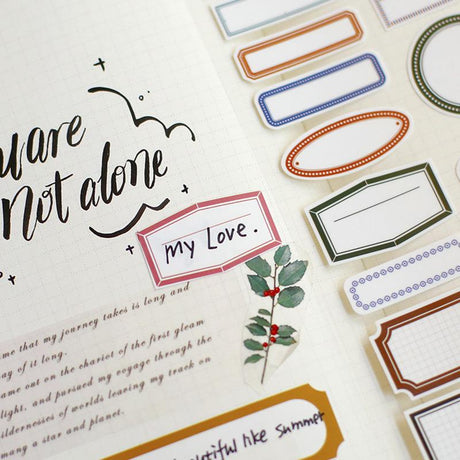 are
Not alone
My Love.
me that my journey takes is long and
ay of it long.
ame out on the chariot of the first gleam
light, and pursued my voyage through the
ildernesses of worlds leaving my track on
many a star and planet.
eautiful like summer